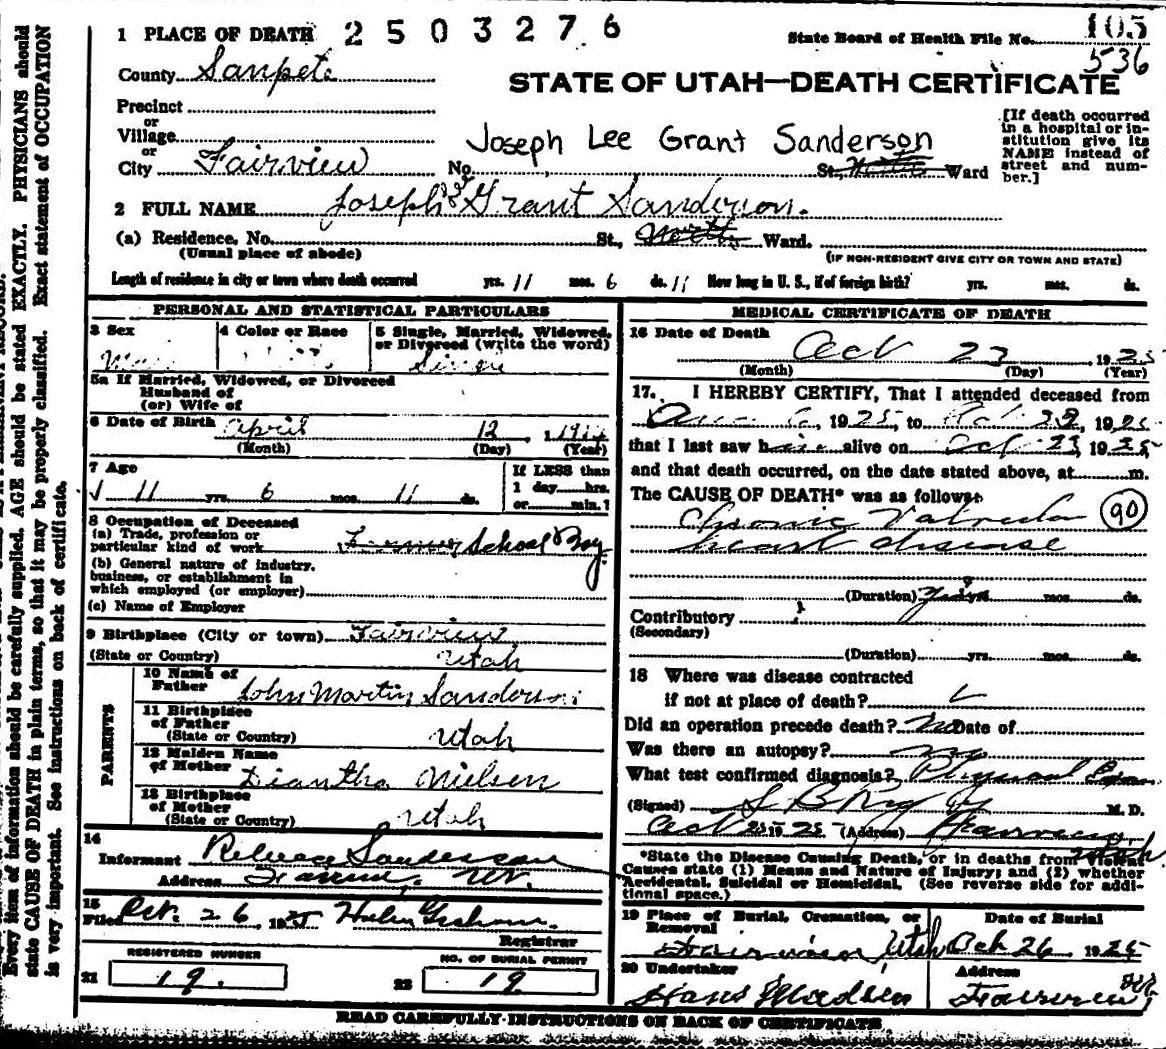 1 PLACE OF DEATH 2503276
State Board of Health File No. 105
536
County Sanpete
STATE OF UTAH—DEATH CERTIFICATE
Precinct
or
Village
or
City Fairview
No.
Joseph Lee Grant Sanderson
St., Ward
[If death occurred
in a hospital or in-
stitution give its
NAME instead of
street and num-
ber.]
2 FULL NAME Joseph L Grant Sanderson.
(a) Residence, No. St., Ward.
(Usual place of abode)
(IF NON-RESIDENT GIVE CITY OR TOWN AND STATE)
Length of residence in city or town where death occurred yrs. 11 mos. 6 ds. 11 How long in U. S., if of foreign birth? yrs. mos. ds.
PERSONAL AND STATISTICAL PARTICULARS
3 Sex
4 Color or Race
5 Single, Married, Widowed,
or Divorced (write the word)
5a If Married, Widowed, or Divorced
Husband of
(or) Wife of
6 Date of Birth April 12
(Month) (Day) (Year)
7 Age
11 yrs. 6 mos. 11 ds.
If LESS than
1 day hrs.
or min.?
8 Occupation of Deceased
(a) Trade, profession or
particular kind of work School Boy
(b) General nature of industry,
business, or establishment in
which employed (or employer)
(c) Name of Employer
9 Birthplace (City or town) Fairview
(State or Country) Utah
PARENTS
10 Name of
Father John Martin Sanderson
11 Birthplace
of Father
(State or Country) Utah
12 Maiden Name
of Mother Diantha Nielsen
13 Birthplace
of Mother
(State or Country) Utah
14
Informant Sanderson
Address
15
Filed Oct. 26, 1925
Registrar
REGISTERED NUMBER
21 19.
NO. OF BURIAL PERMIT
22 19
MEDICAL CERTIFICATE OF DEATH
16 Date of Death
Oct 23 1925
(Month) (Day) (Year)
17. I HEREBY CERTIFY, That I attended deceased from
1925, to 1925
that I last saw h alive on Oct 23 1925
and that death occurred, on the date stated above, at m.
The CAUSE OF DEATH* was as follows:
Chronic Valvular 90
heart disease
(Duration) yrs. mos. ds.
Contributory
(Secondary)
(Duration) yrs. mos. ds.
18 Where was disease contracted
if not at place of death?
Did an operation precede death? No Date of
Was there an autopsy? no
What test confirmed diagnosis? Physical Exam
(Signed) M. D.
Oct 1925 (Address) Fairview
*State the Disease Causing Death, or in deaths from Violent
Causes state (1) Means and Nature of Injury; and (2) whether
Accidental, Suicidal or Homicidal. (See reverse side for addi-
tional space.)
19 Place of Burial, Cremation, or
Removal
Date of Burial
Fairview, Utah Oct 26 1925
20 Undertaker
Address
Hans Madsen Fairview
READ CAREFULLY INSTRUCTIONS ON BACK OF CERTIFICATE
Every item of information should be carefully supplied. AGE should be stated EXACTLY. PHYSICIANS should
state CAUSE OF DEATH in plain terms, so that it may be properly classified. Exact statement of OCCUPATION
is very important. See instructions on back of certificate.